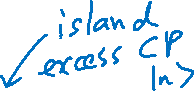 island
excess CP
In>